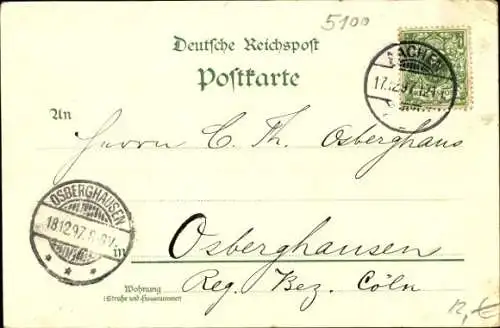 5100
Deutsche Reichspost
Postkarte
AACHEN
17.12.97.
An
Herrn C. Th. Osberghaus
OSBERGHAUSEN
18.12.97.
in
Osberghausen
Reg. Bez. Cöln
Wohnung
(Straße und Hausnummer)
12,€